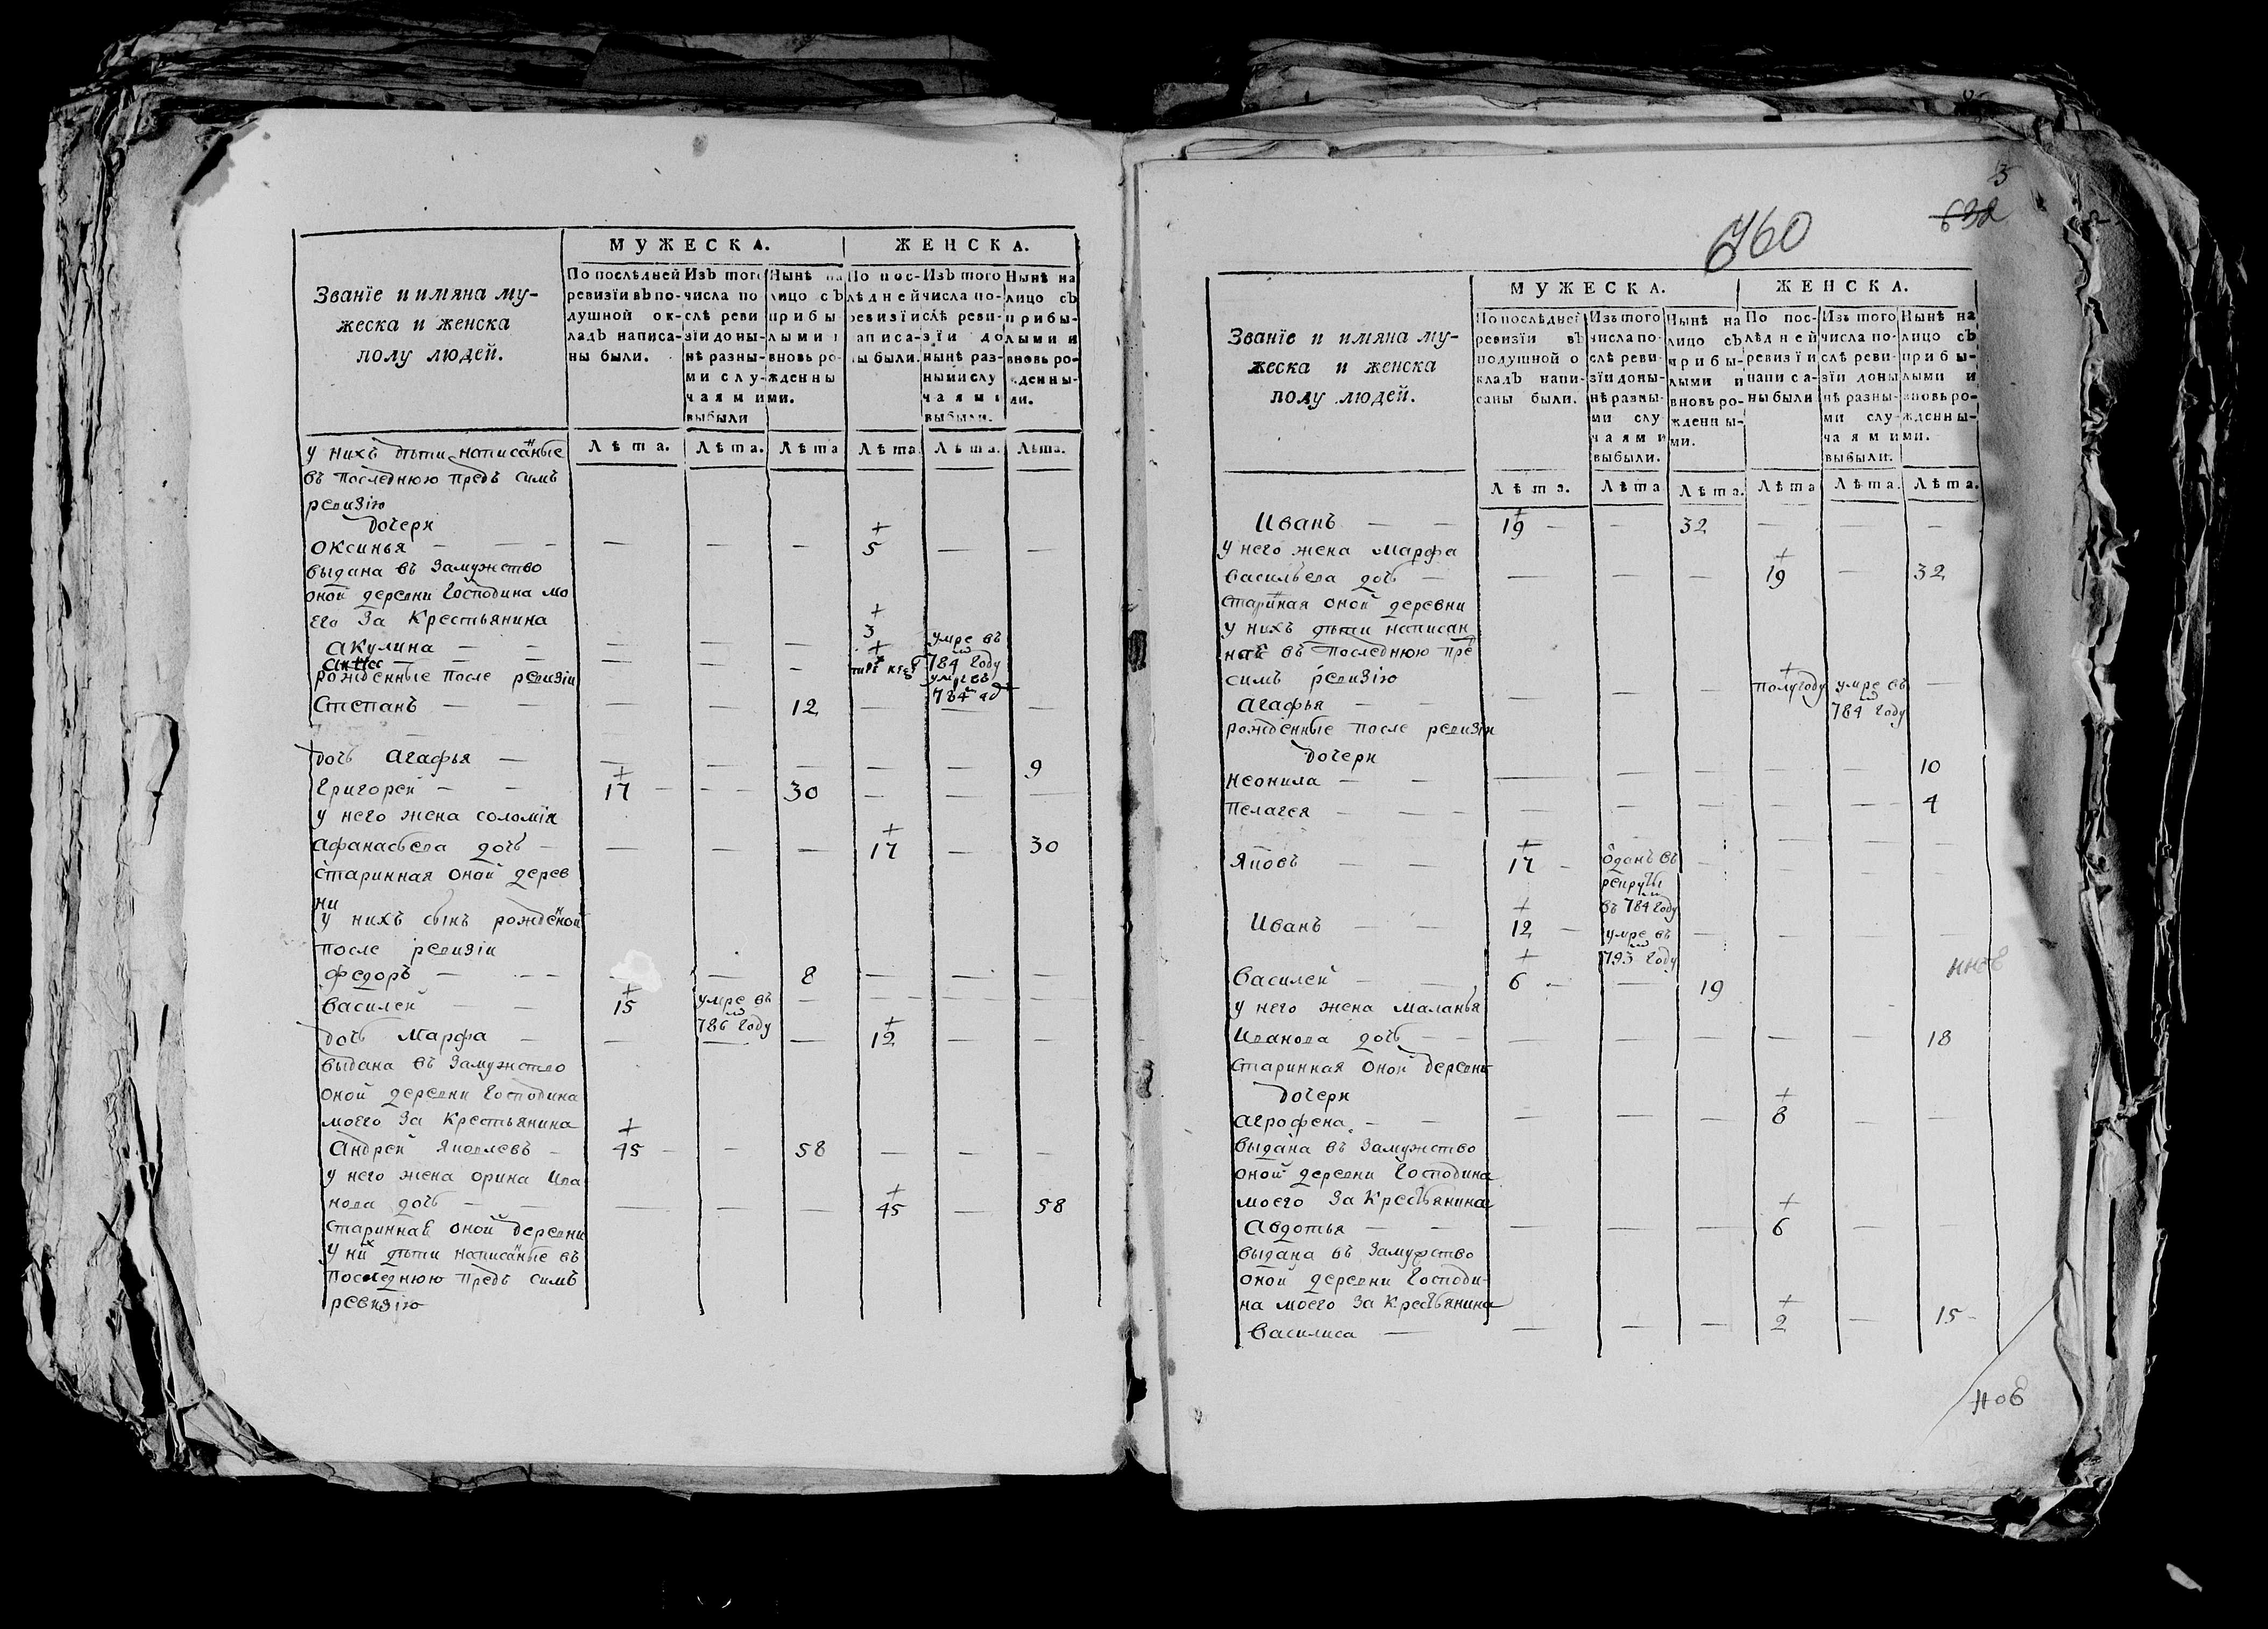 МУЖЕСКА. ЖЕНСКА.
Званїе и имяна му-
жеска и женска
полу людей.
По послѣдней
ревизїи въ по-
душной ок-
ладъ написа-
ны были.
Изъ того
числа по
слѣ реви
зїи доны-
нѣ разны-
ми слу-
чаями
выбыли
Нынѣ на
лицо съ
прибы
лыми и
вновь ро-
жденны
ми.
По пос-
лѣдней
ревизїи
написа-
ны были.
Изъ того
числа по-
слѣ реви-
зїи до
нынѣ раз-
ными слу
чаями
выбыли.
Нынѣ на
лицо съ
прибы-
лыми и
вновь ро-
жденны-
ми.
Лѣта. Лѣта. Лѣта Лѣта Лѣта. Лѣта.
у нихъ дѣти написанные
въ последнюю предъ симъ
ревизїю
дочери
Оксинья — — — — + 5 — —
выдана въ замужство
оной деревни Господина мо
его за Крестьянина
Акулина — — — — + 3 умре въ 784 году
Анна — — — + умре въ 784 год
рожденные после ревизїи
Степанъ — — — — 12 — — —
дочь Агафья — — — — — — 9
Григорей — — + 17 — — — 30 — — —
у него жена соломїя
Афанасьева дочь — — — — + 17 — 30
старинная оной дерев
ни
у нихъ сынъ рожденной
после ревизїи
Федоръ — — — — 8 — — —
Василей — — + 15 умре въ 786 году — — — —
дочь Марфа — — — — + 12 — —
выдана въ замужство
оной деревни Господина
моего за Крестьянина
Андрей Яковлевъ — + 45 — — 58 — — —
у него жена орина Ива
нова дочь — — — — — + 45 — 58
старинная оной деревни
У них дѣти написанные въ
последнюю предъ симъ
ревизїю
3
632
760
МУЖЕСКА. ЖЕНСКА.
Званїе и имяна му-
жеска и женска
полу людей.
По послѣдней
ревизїи въ
подушной о
кладъ напи-
саны были.
Изъ того
числа по-
слѣ реви-
зїи доны-
нѣ разны-
ми слу
чаями
выбыли.
Нынѣ на
лицо съ
прибы-
лыми и
вновь ро-
жденны-
ми.
По пос-
лѣдней
ревизїи
написа-
ны были
Изъ того
числа по-
слѣ реви-
зїи доны
нѣ разны-
ми слу-
чаями
выбыли.
Нынѣ на
лицо съ
прибы-
лыми и
вновь ро-
жденны-
ми.
Лѣта. Лѣта Лѣта. Лѣта Лѣта. Лѣта.
Иванъ — — + 19 — — 32 — — —
у него жена Марфа
Васильева дочь — — — — + 19 — 32
старинная оной деревни
у нихъ дѣти написан
ные въ последнюю пре
симъ ревизїю
Агафья — — — — — + полугоду умре въ 784 году —
рожденные после ревизїи
дочери
Неонила — — — — — — — 10
Пелагея — — — — — — — 4
Яковъ — — + 17 — отданъ въ рекруты въ 784 году — — — —
Иванъ — — + 12 — умре въ 793 году — — — —
Василей — — + 6 — — 19
у него жена Маланья
Иванова дочь — — — — — — — 18
старинная оной деревни
дочери
Агрофена — — — — — + 8 — —
выдана въ замужство
оной деревни Господина
моего за Крестьянина
Авдотья — — — — — + 6 — —
выдана въ замужство
оной деревни Господи-
на моего за Крестьянина
Василиса — — — — + 2 — 15 —